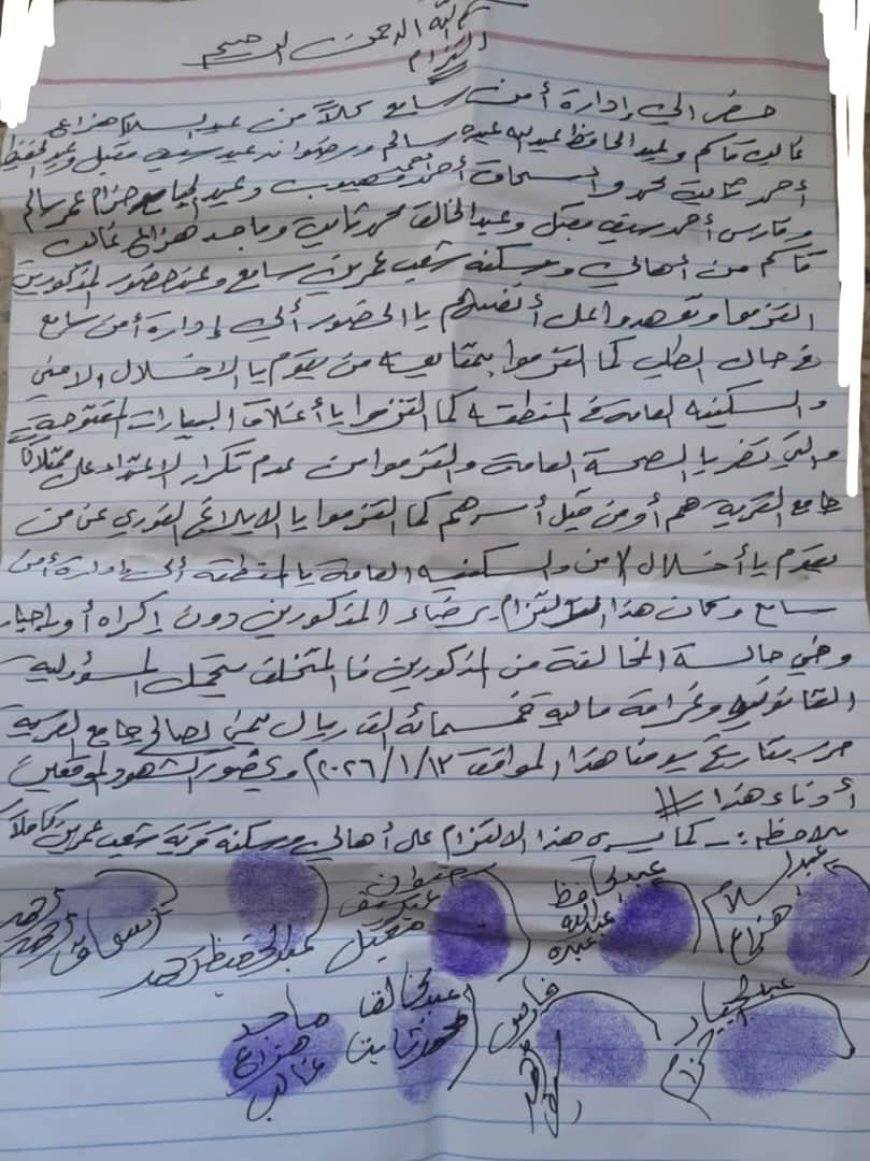 بسم الله الرحمن الرحيم
التزام
حضر إلى إدارة أمن سامع كلاً من عبدالسلام هزاع
غالب قاسم وعبدالحافظ عبدالله عبده سالم ورضوان عبد سيف مقبل وعبدالحفيظ
أحمد ثابت محمد وإسحاق أحمد وعبدالجبار حزام عمر سالم
وفارس أحمد سيف مقبل وعبدالخالق محمد ثابت وماجد هزاع غالب
قاسم من أهالي وسكنه شعب عمرين سامع وعند حضور المذكورين
التزموا وتعهدوا على أنفسهم بالحضور ألى إدارة أمن سامع
في حال الطلب كما التزموا بمتابعة من يقوم بالاخلال الامني
والسكينه العامة في المنطقه كما التزموا بأغلاق البيارات المفتوحة
والتي تضر بالصحة العامة والتزموا من عدم تكرار الاعتداء على ممتلكات
جامع القرية هم أو من قبل أسرهم كما التزموا بالابلاغ الفوري عن من
يقوم بأخلال الامن والسكينه العامة بالمنطقه ألى إدارة أمن
سامع وكان هذا الالتزام برضاء المذكورين دون إكراه أو إجبار
وفي حالة المخالفة من المذكورين فا المتخلف يتحمل المسؤوليه
القانونيه وغرامة ماليه خمسمائة الف ريال يمني لصالح جامع القرية
حرر بتاريخ يومنا هذا الموافق ٢٠٢٦/١/١٣م وبحضور الشهود الموقعين
أدناه هذا //
ملاحظه :- كما يسري هذا الالتزام على أهالي وسكنه قرية شعب عمرين كاملاً
عبدالسلام هزاع
عبدالحافظ عبدالله عبده
رضوان عبد سيف مقبل
عبدالحفيظ احمد
اسحاق احمد
عبدالجبار حزام
فارس احمد
عبدالخالق محمد ثابت
ماجد هزاع غالب